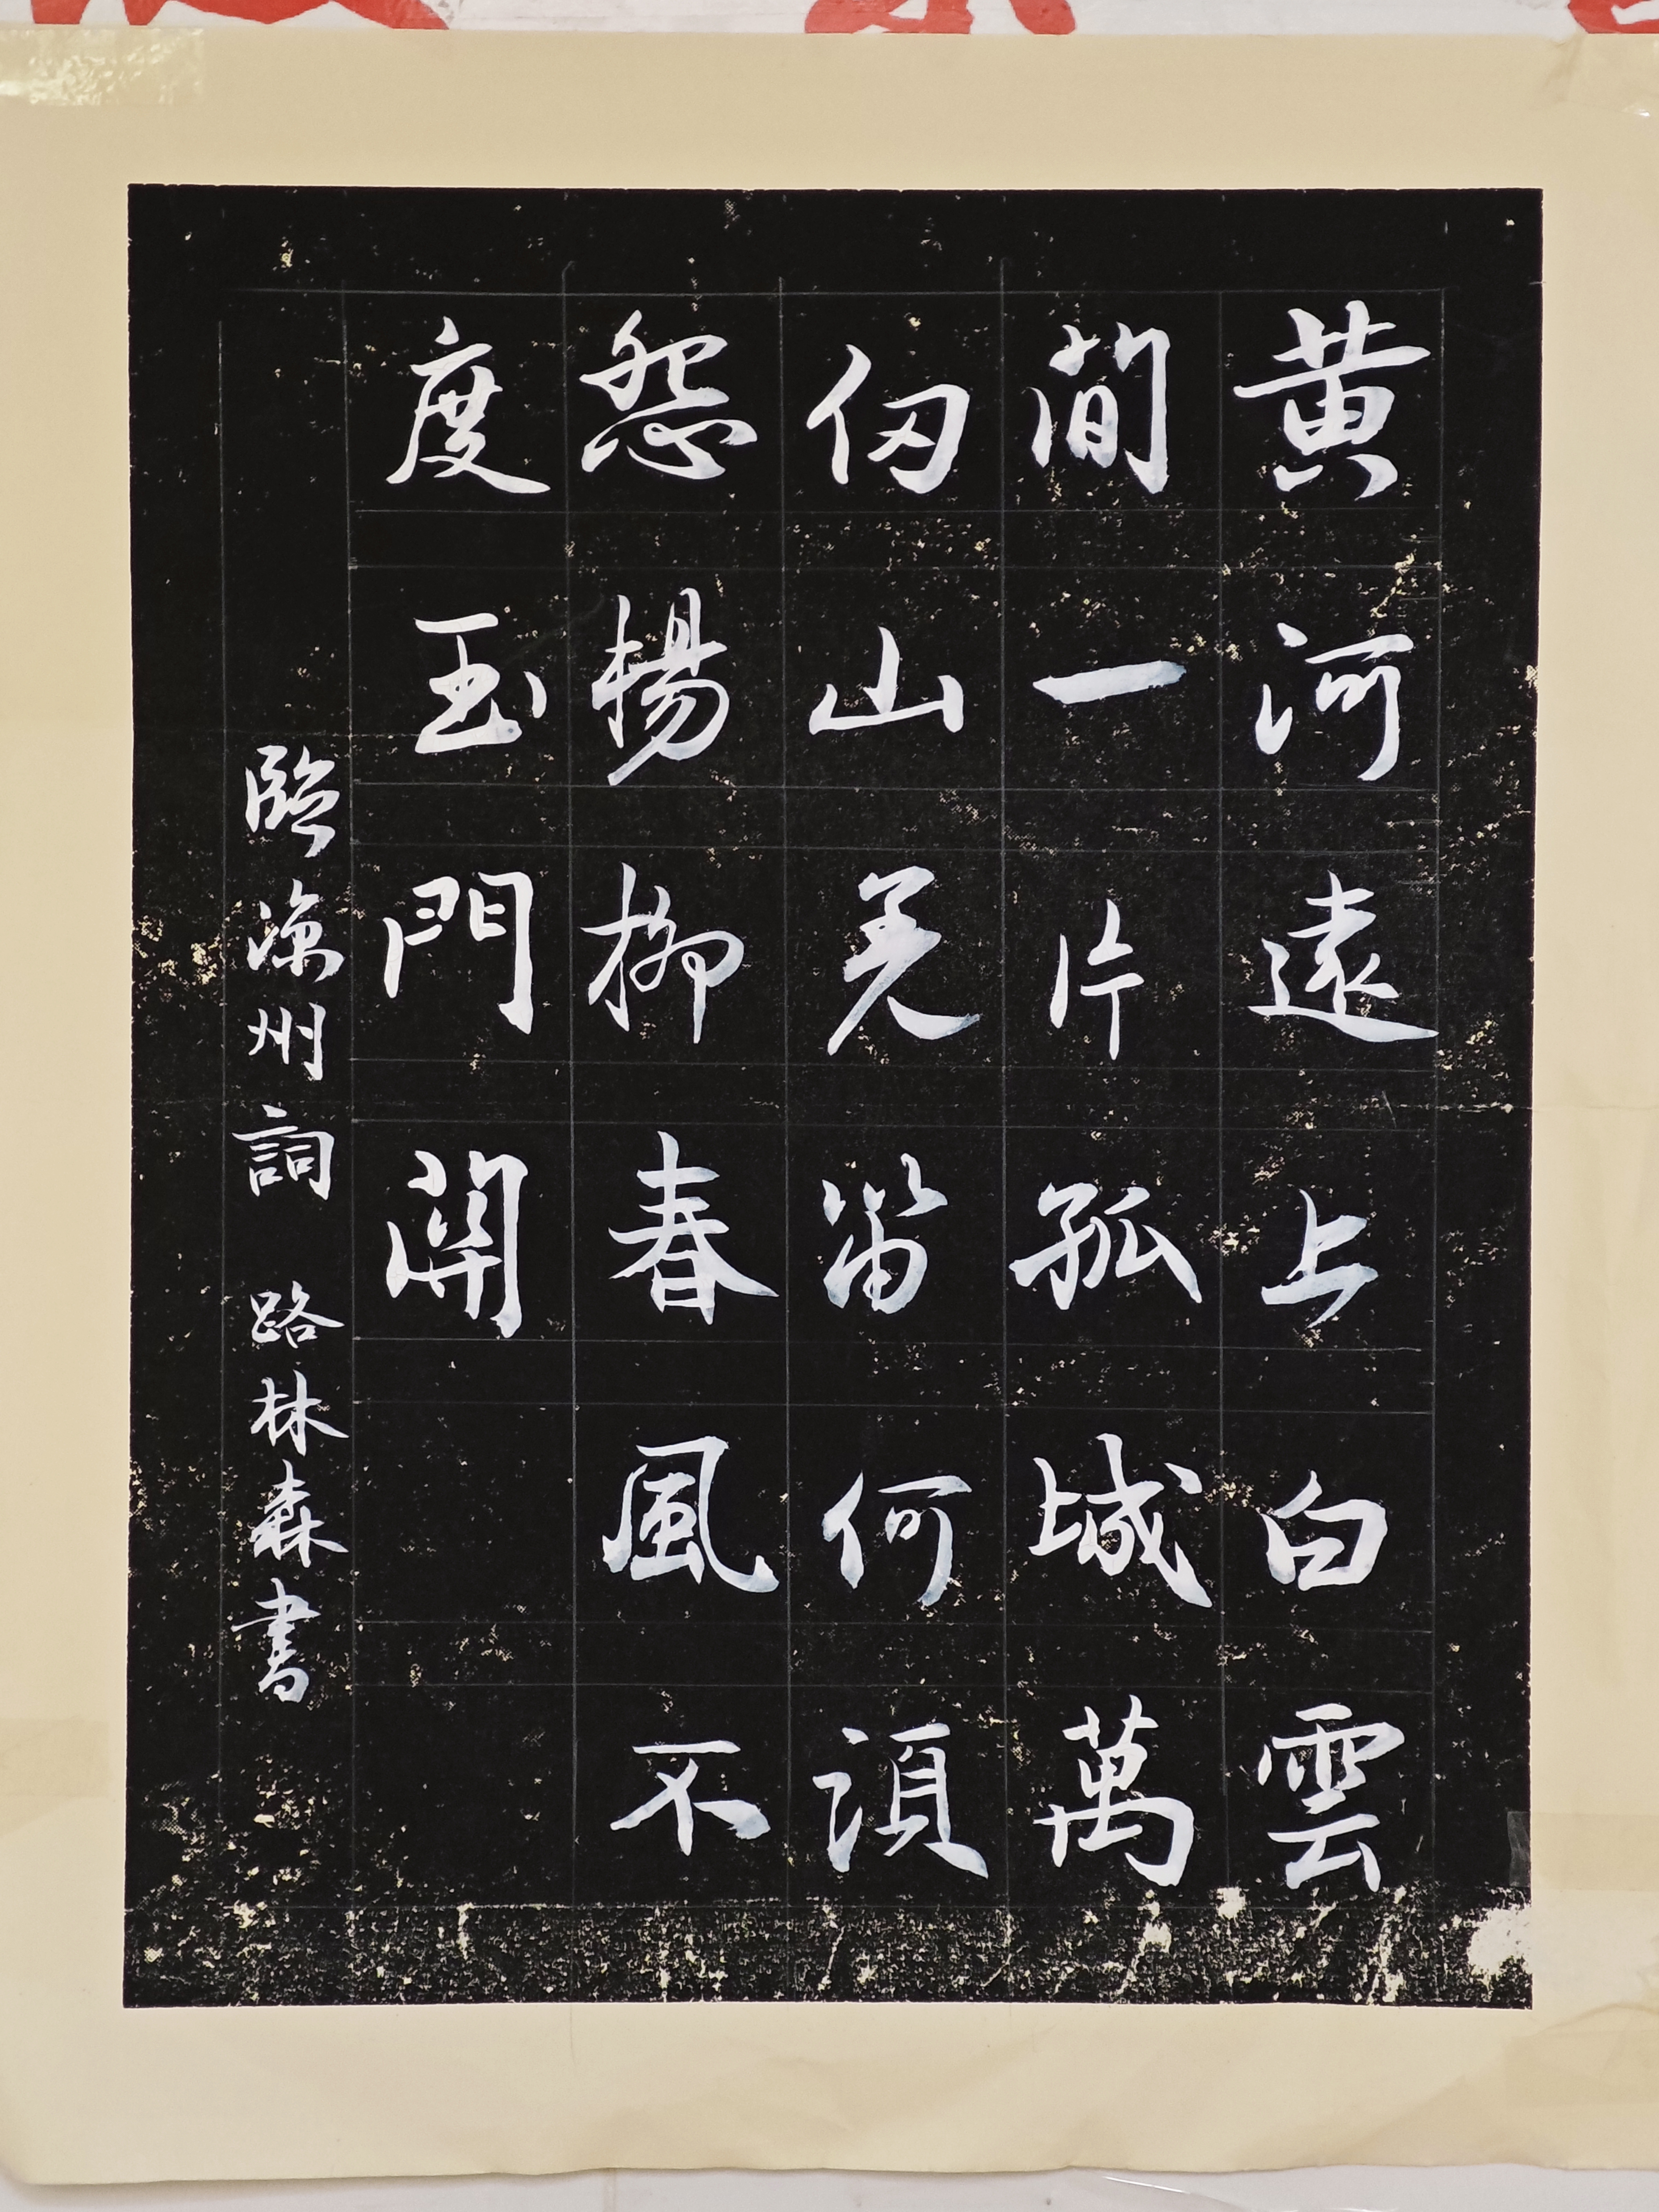 黄河遠上白雲
間一片孤城萬
仞山羌笛何須
怨楊柳春風不
度玉門開
臨涼州詞 路林森書